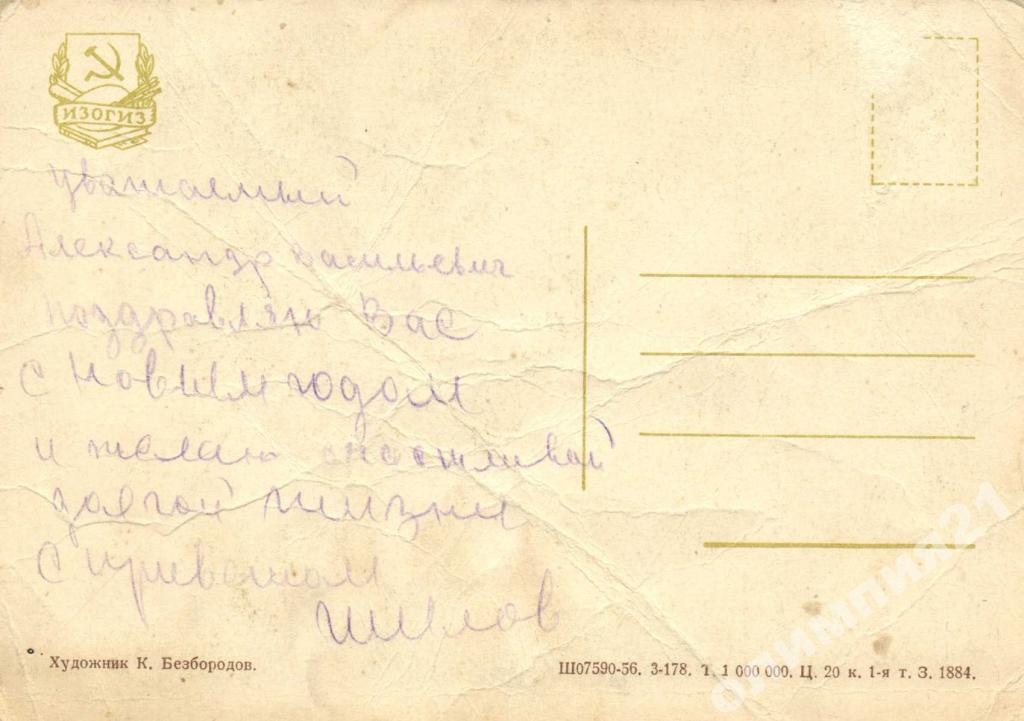 ИЗОГИЗ
уважаемый
Александр Васильевич
поздравляю Вас
с новым годом
и желаю счастливой
долгой жизни
с приветом
Шилов
Художник К. Безбородов.
Ш07590-56. 3-178. Т. 1 000 000. Ц. 20 к. 1-я т. З. 1884.
олимпия21